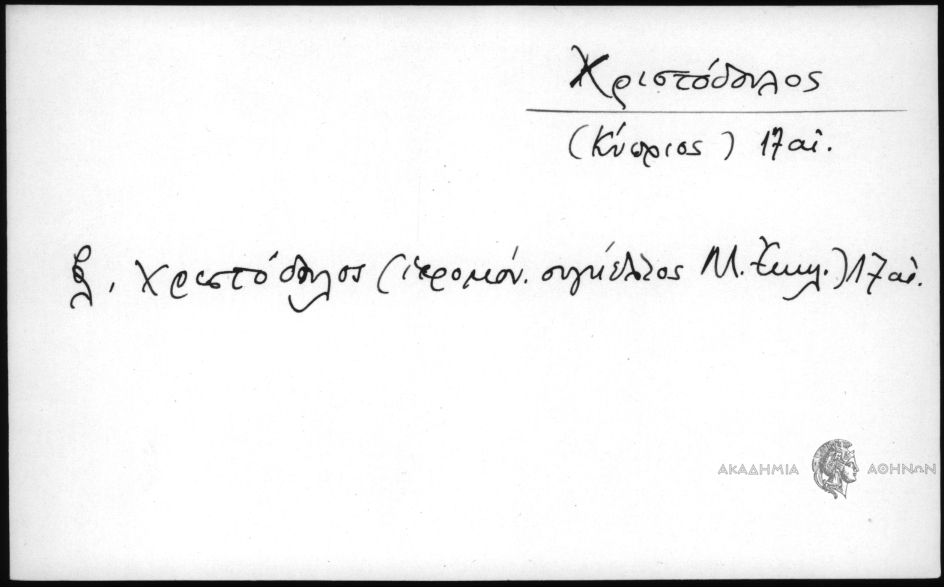 Χριστόδουλος
(Κύπριος) 17 αἰ.
βλ. Χριστόδουλος (ἱερομόν. συγκέλλος Μ. Ἐκκλ.) 17 αἰ.
ΑΚΑΔΗΜΙΑ ΑΘΗΝΩΝ